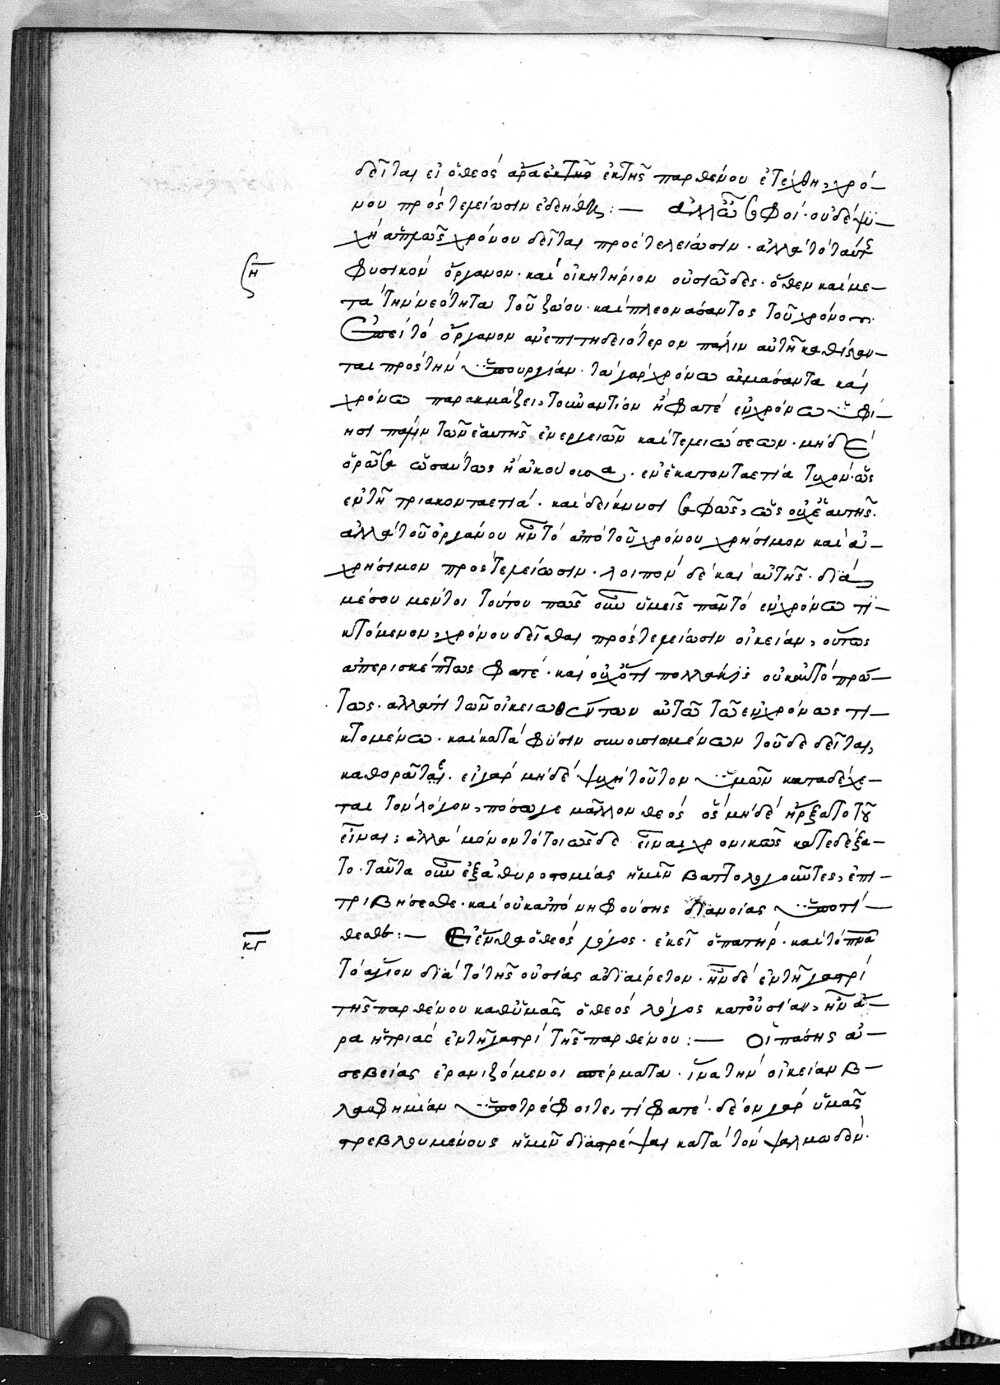 δεῖται εἰ ὁ θεὸς ἄρα ἐκ τῆς ἐκ τῆς παρθένου ἐτέχθη, χρό-
νου πρὸς τελείωσιν ἐδεήθη :— ἀλλ' ὦ σοφοὶ· οὐδὲ ψυ-
χὴ ἁπλῶς χρόνου δεῖται πρὸς τελείωσιν· ἀλλὰ τὸ ταύτης
φυσικὸν ὄργανον· καὶ οἰκητήριον οὐσιῶδες· ὅθεν καὶ με-
τὰ τὴν νεότητα τοῦ ζώου· καὶ πλεονάσαντος τοῦ χρόνου
ἐπεὶ τὸ ὄργανον ἀνεπιτηδειότερον πάλιν αὐτῇ καθίσταν-
ται πρὸς τὴν ὑπουργίαν· τὰ γὰρ χρόνω ἀκμάσαντα καὶ
χρόνω παρακμάζει, τοὐναντίον ἢ φατὲ ἐν χρόνω ὑφί-
ησι πάλιν τῶν ἑαυτῆς ἐνεργειῶν καὶ τελειώσεων· μηδὲ
ὁρῶσα ὡσαύτως ἢ ἀκούουσα· ἐν ἑκατονταετία τυχόν· ὡς
ἐν τῇ τριακονταετία· καὶ δείκνυσι σαφῶς, ὡς οὐχ ἑαυτῆς·
ἀλλὰ τοῦ ὀργάνου ἦν τὸ ἀπὸ τοῦ χρόνου χρήσιμον καὶ ἀ-
χρήσιμον πρὸς τελείωσιν· λοιπὸν δὲ καὶ αὐτῆς· διὰ
μέσου μέντοι τούτου πῶς οὖν ὑμεῖς πᾶν τὸ ἐν χρόνω τι-
κτόμενον, χρόνου δεῖσθαι πρὸς τελείωσιν οἰκείαν, οὕτως
ἀπερισκέπτως φατὲ· καὶ οὐχ ὅτι πολλάκις οὐκ αὐτὸ πρώ-
τως· ἀλλά τι τῶν οἰκειωθέντων αὐτῶ τῶ ἐν χρόνω τι-
κτομένω· καὶ κατὰ φύσιν συνουσιωμένων τοῦδε δεῖται,
καθορᾶτε· εἰ γὰρ μηδὲ ψυχὴ τοῦτον ὑμῶν καταδέχε-
ται τὸν λόγον, πόσω γε μᾶλλον θεὸς ὃς μηδὲ ἤρξατο τοῦ
εἶναι; ἀλλὰ μόνον τὸ τοιῶσδε εἶναι χρονικῶς κατεδέξα-
το· ταῦτα οὖν ἐξ ἀθυροστομίας ἡμῖν βαττολογοῦντες, ἐπι-
τριβήσεσθε· καὶ οὐκ ἀπὸ νηφούσης διανοίας ὑποτί-
θεσθε :— Εἰ ἔνθα ὁ θεὸς λόγος· ἐκεῖ ὁ πατὴρ· καὶ τὸ πνα
τὸ ἅγιον διὰ τὸ τῆς οὐσίας ἀδιαίρετον· ἦν δὲ ἐν τῇ γαστρὶ
τῆς παρθένου καθ' ὑμᾶς ὁ θεὸς λόγος κατ' οὐσίαν, ἦν ἄ-
ρα ἡ τριὰς ἐν τῇ γαστρὶ τῆς παρθένου :— Οἱ πάσης ἀ-
σεβείας ἐρανιζόμενοι σπέρματα· ἵνα τὴν οἰκείαν β-
λασφημίαν ὑποτρέφοιτε, τί φατέ· δέον γὰρ ὑμᾶς
στρεβλουμένους ἡμῖν διαστρέψαι κατὰ τὸν ψαλμωδόν·
η
κγ